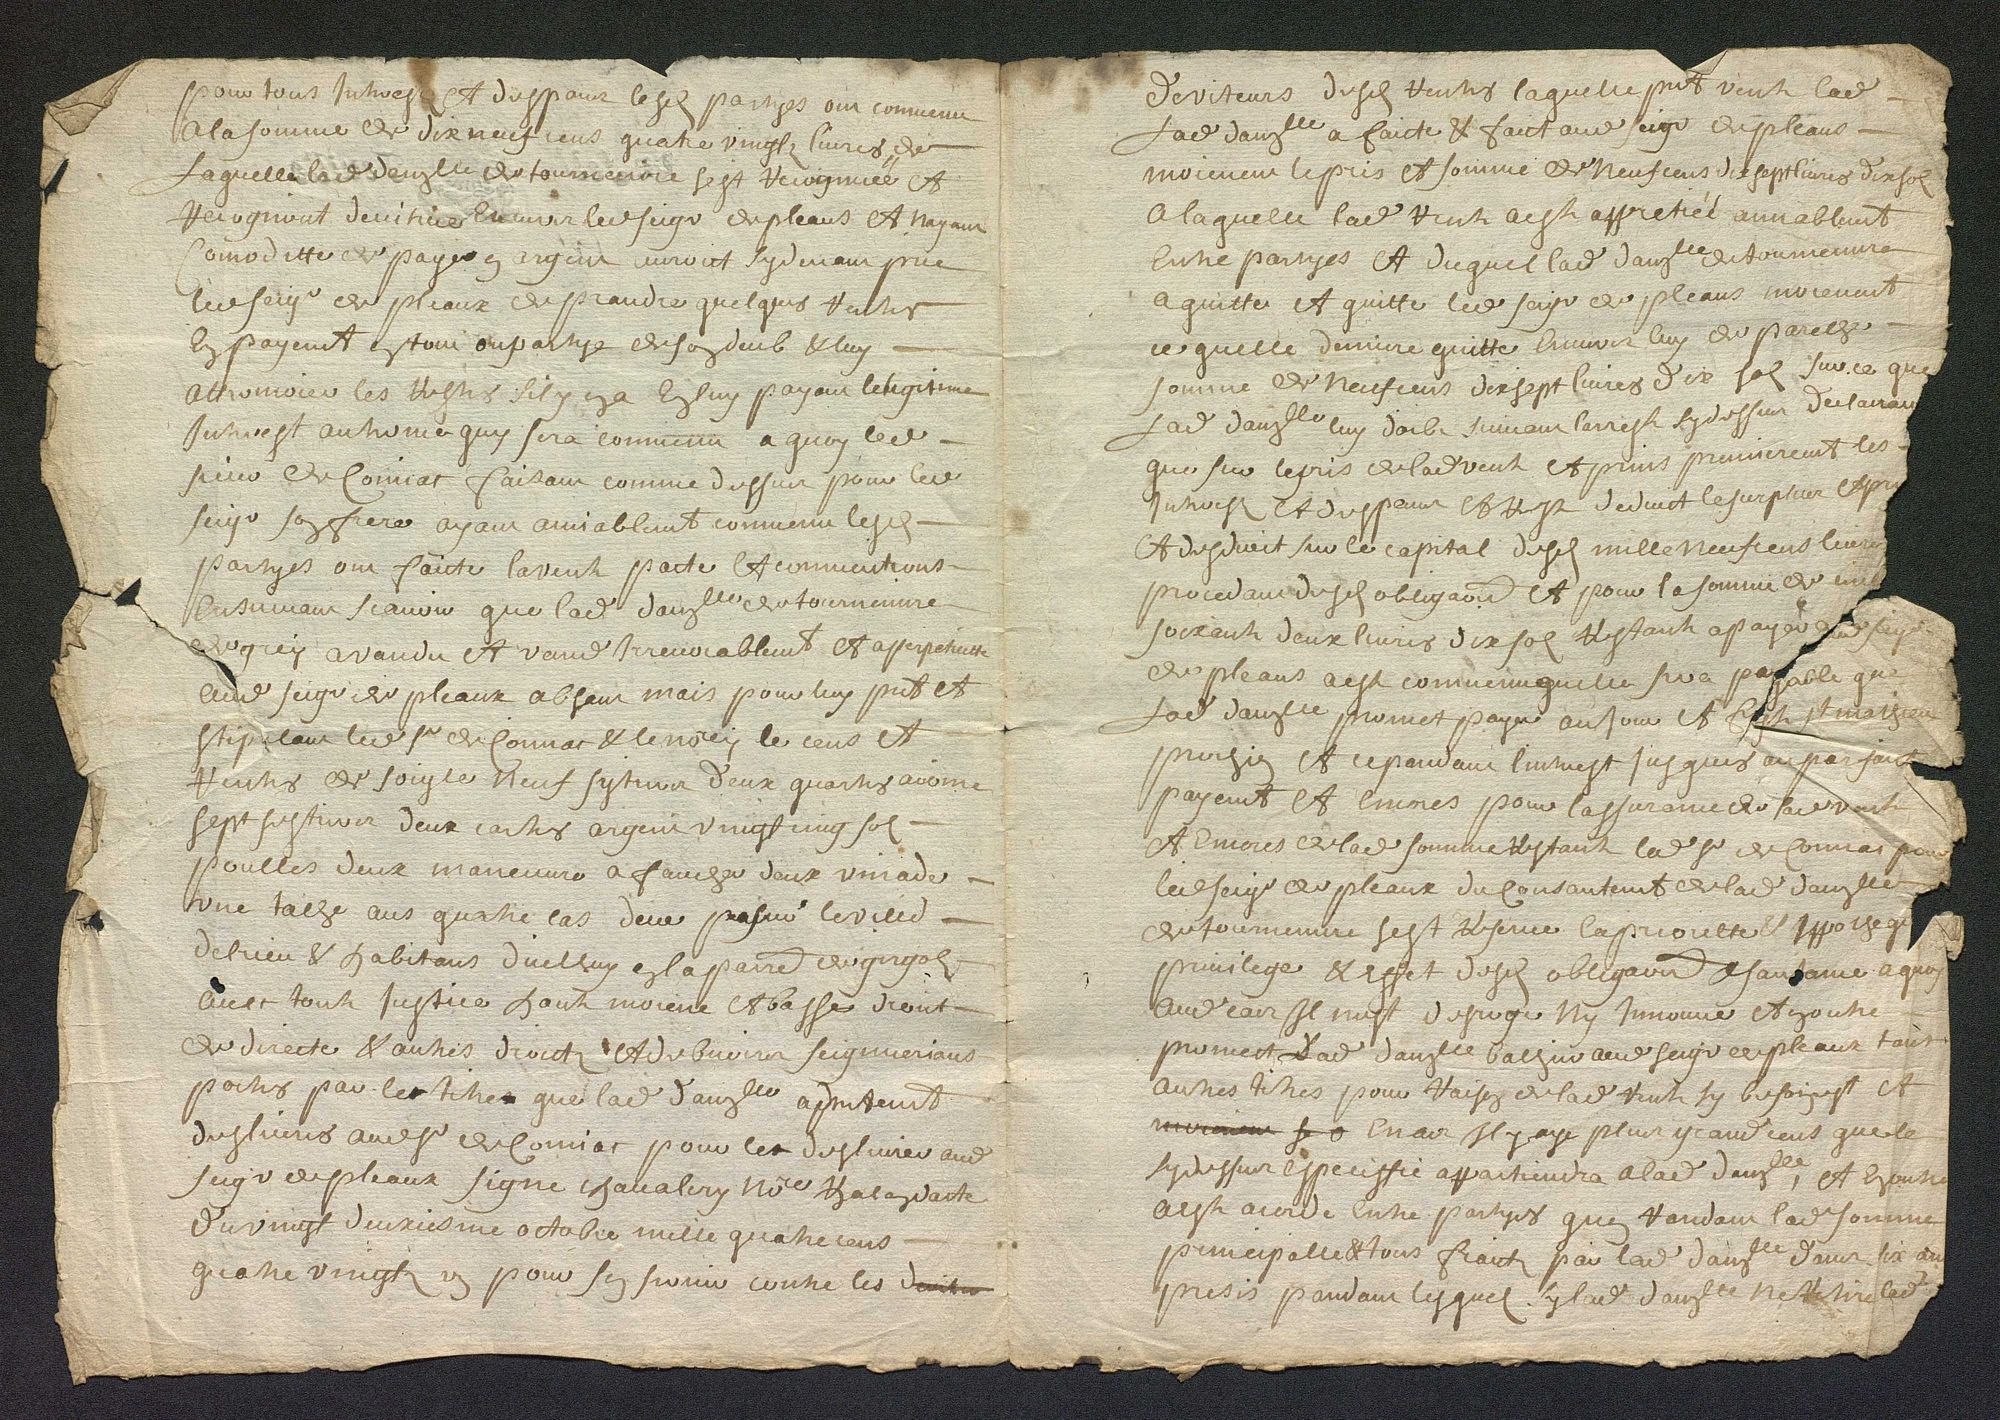 pour tous Inthretz Et despans lesd partyes ont convenu
A la somme de dix neuf cens quatre vingtz livres de
Laquelle lad damlle de tournemire sest recogneüe Et
recognoit devitrice Envers led seigr de pleaus Et nayant
Comoditte de payer en argent auroit sydevant prie
led seigr de pleaux de prandre quelques renthes
En payemt en tout ou partye de son deub & luy
athermoier les restes sil y en a En luy payant lelegitime
Inthrest au terme quy sera convenu a quoy led
sieur de Comiac faisant comme dessus pour led
seigr son frere ayant amiablemt convenu lesd
partyes ont faicte la vente pacte Et conventions
Ensuivant scavoir que lad damlle de tournemire
de grey a vandu Et vand Irrevocablemt Et a perpetuitte
aud seigr de pleaux absant mais pour luy pnt Et
stipulant led sr de Comiac & le nore le cens Et
renthes de soigle neuf systiers deux quartes avoine
sept systiers deux cartes argent vingt cinq solz
poulles deux maneuvre a faucher deux vinade
une talhe aus quatre cas deue par sur le villd
delrieu & habitans dicelluy en la parred de girgolz
avec toute Justice haute moiene Et basse droit
de directe & autres droictz Et debvoirs seigneuriaus
portes par les titres que lad damlle a pntemt
deslivres aud sr de Comiac pour les deslivrer aud
seigr de pleaux signe chavalery nore en date
du vingt deuxiesme octobre mille quatre cens
quatre vingtz un pour sen servir contre les
Deviteurs desd renthes laquelle pnt vente lad
Lad damlle a faicte & faict aud seigr de pleaus
moienent le pris Et somme de neuf cens dix sept livres dix solz
A laquelle lad vente a esté appretiée amiablemt
Entre partyes Et duquel lad damlle de tournemire
a quitte Et quitte led seigr de pleaus moienent
ce quelle demure quitte Envers luy de parelhe
somme de neuf cens dix sept livres dix solz sur ce que
Lad damlle luy doibt suivant larreste sydessus declairant
que sur le pris de lad vente Et prins premierement les
Inthretz Et despans Et reste deduict le surplus
Et desduict sur le capital desd mille neuf cens livres
procedant desd obligaons Et pour la somme de
soixante deux livres dix solz restante a payer aud seigr
de pleaus a este convenu quelle sera payable que
Lad damlle promet payer au jour Et feste st mathieu
prochen Et cependant linthrest jusques au parfaict
payemt Et encores pour lassurance de lad vente
Et Encores de lad somme restante led sr de Comiac pour
led seigr de pleaux du consantemt de lad damlle
de tournemire sest reserve la priorette & Ippotheque
privilege & effet desd obligaons a quoy
Aud cas Il nest desroge ny Innove Et en outre
promect Lad damlle balher aud seigr de pleaux tous
autres titres pour raison de lad vente sy besoin est Et
En cas Il y aye plus grand cens que le
sydessus Especiffie appartiendra a lad damlle, Et En outre
a este acorde Entre partyes quen randant lad somme
principalle & tous fraictz par lad damlle dans six ans
presis pandant lesquels sy lad damlle ne retire lad